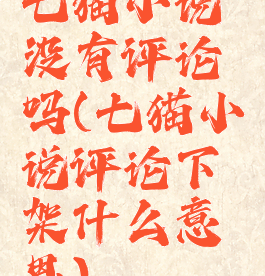 七猫小说
没有评论
吗(七猫小
说评论下
架什么意
思)